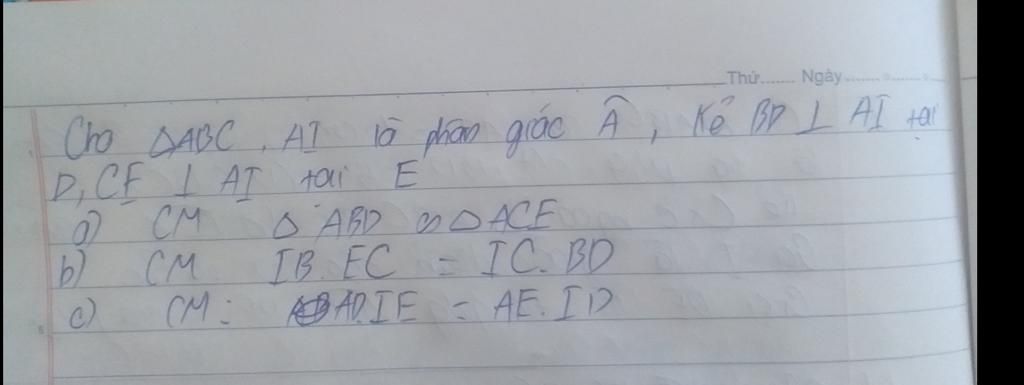 Thứ....... Ngày..................
Cho △ABC, AI là phân giác Â, Kẻ BD ⊥ AI tại
D, CE ⊥ AI tại E
a) CM △ ABD ∽ △ ACE
b) CM IB. EC = IC. BD
c) CM: AD.IE = AE. ID